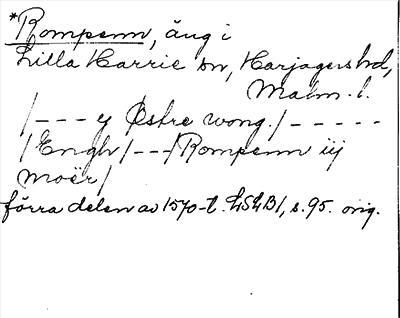 *Rompenn, äng i
Lilla Harrie sn, Harjagers hd,
Malm. l.
/--- ej Østre wong./-----
/Engh/---/Rompenn iij
moër/
förra delen av 1570-t. LSLB1, s. 95. orig.